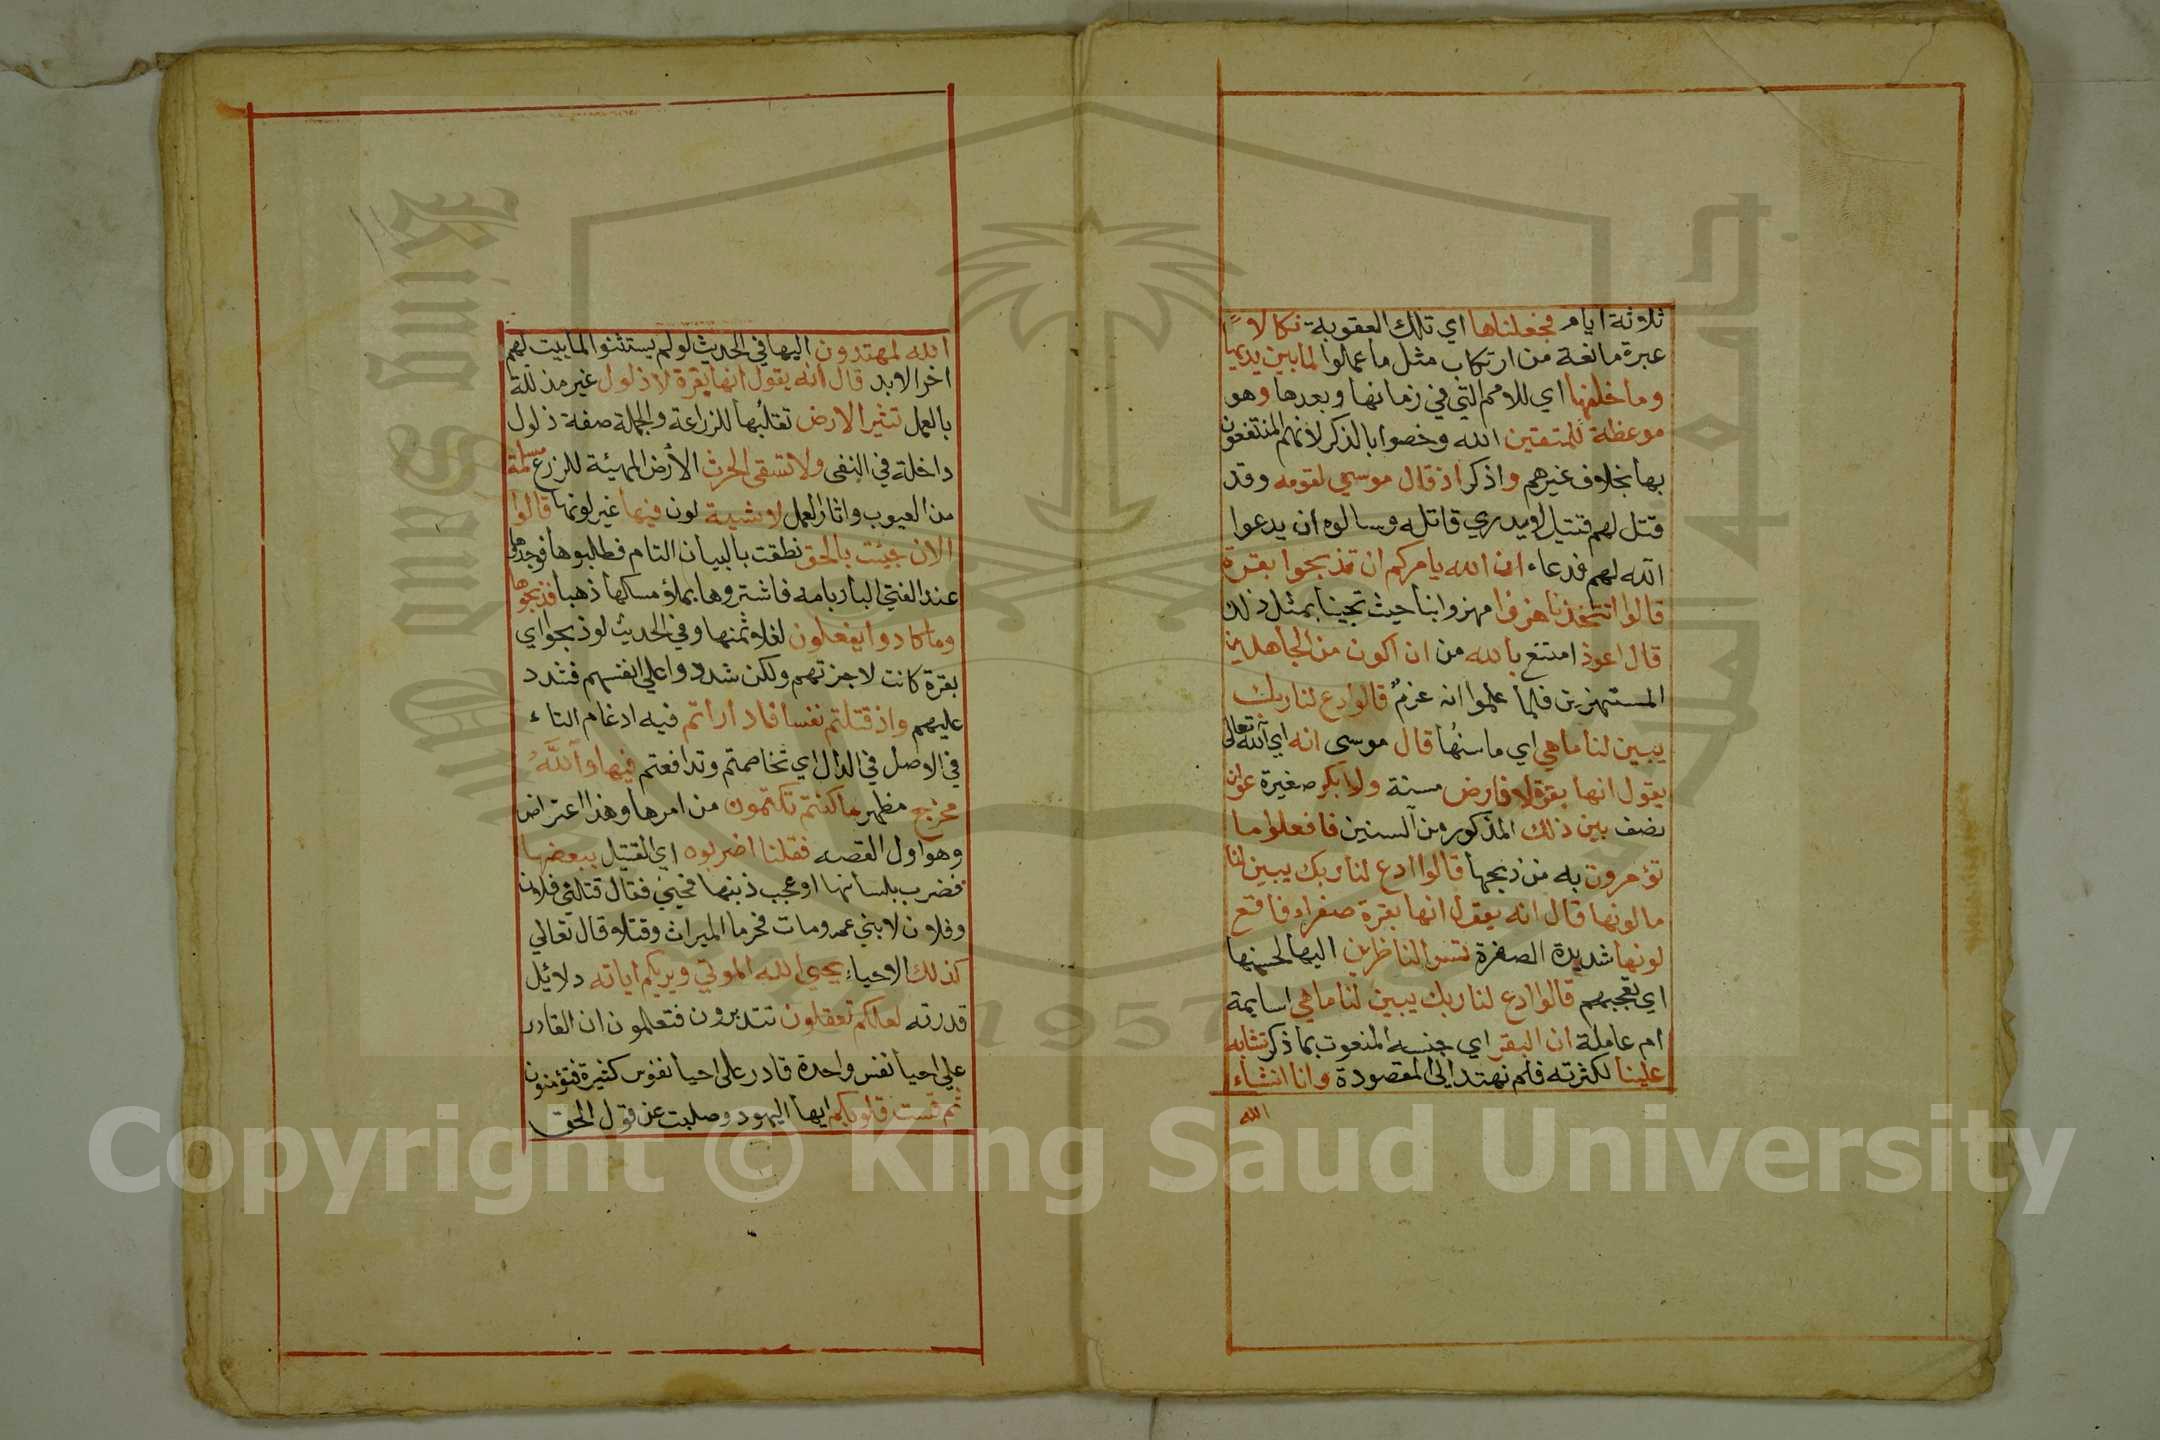 ثلاثة ايام فجعلناها اي تلك العقوبة نكالا
عبرة مانعة من ارتكاب مثل ما عملوا لما بين يديها
وما خلفها اي للامم التي في زمانها وبعدها وهو
موعظة للمتقين الله وخصوا بالذكر لانهم المنتفعون
بها بخلاف غيرهم واذكر اذ قال موسي لقومه وقد
قتل لهم قتيل لا يدري قاتله وسالوه ان يدعوا
الله لهم فدعاء ان الله يامركم ان تذبحوا بقرة
قالوا اتتخذنا هزوا مهزوا بنا حيث تجيبنا بمثل ذلك
قال اعوذ امتنع بالله من ان اكون من الجاهلين
المستهزين فلما علموا انه عزم قالوا ادع لنا ربك
يبين لنا ما هي اي ما سنها قال موسي انه اي الله تعالى
يقول انها بقرة لا فارض مسنة ولا بكر صغيرة عوان
نصف بين ذلك المذكور من السنين فافعلوا ما
تؤمرون به من ذبحها قالوا ادع لنا ربك يبين لنا
ما لونها قال انه يقول انها بقرة صفراء فاقع
لونها شديدة الصفرة تسر الناظرين اليها لحسنها
اي تعجبهم قالوا ادع لنا ربك يبين لنا ما هي اسايمة
ام عاملة ان البقر اي جنسه المنعوت بما ذكر تشابه
علينا لكثرته فلم نهتد الى المقصودة وانا انشاء
الله
الله لمهتدون اليها في الحديث لو لم يستثنوا لما بيت لهم
اخر الابد قال انه يقول انها بقرة لا ذلول غير مذللة
بالعمل تثير الارض تقلبها للزراعة والجملة صفة ذلول
داخلة في النفي ولا تسقى الحرث الأرض المهيئة للزرع مسلمة
من العيوب واثار العمل لا شية لون فيها غير لونها قالوا
الان جيئت بالحق نطقت بالبيان التام فطلبوها فوجدوها
عند الفتي البار بامه فاشتروها بملؤ مسكها ذهبا فذبحوها
وما كادوا يفعلون لغلا ثمنها وفي الحديث لو ذبحوا اي
بقرة كانت لاجزتهم ولكن شددوا علي انفسهم فشدد
عليهم واذ قتلتم نفسا فاداراتم فيه ادغام التاء
في الاصل في الدال اي تخاصمتم وتدافعتم فيها واللَّهُ
مخرج مظهر ما كنتم تكتمون من امرها وهذا اعتراض
وهو اول القصه فقلنا اضربوه اي القتيل ببعضها
فضرب بلسانها او عجب ذنبها فحيي فقال قتلني فلان
وفلان لابني عمه ومات فحرما الميراث وقتلا قال تعالي
كذلك الاحياء يحيي الله الموتي ويريكم اياته دلائل
قدرته لعلكم تعقلون تتدبرون فتعلمون ان القادر
علي احيا نفس واحدة قادر على احيا نفوس كثيرة فتؤمنون
ثم قست قلوبكم ايها اليهود وصلبت عن قول الحق
Copyright © King Saud University
King Saud University
1957